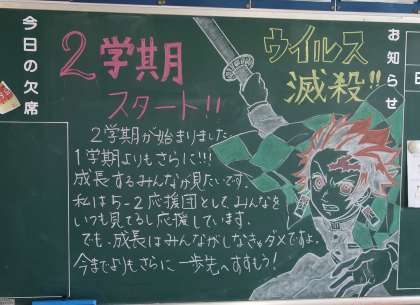 今日の欠席
2学期
スタート!!
ウイルス
滅殺!!
お知らせ
2学期が始まりました
1学期よりもさらに!!!
成長するみんなが見たいです。
私は5-2応援団としてみんなを
いつも見てるし応援しています。
でも、成長はみんながしなきゃダメですよ。
今までよりもさらに一歩先へすすもう!
日